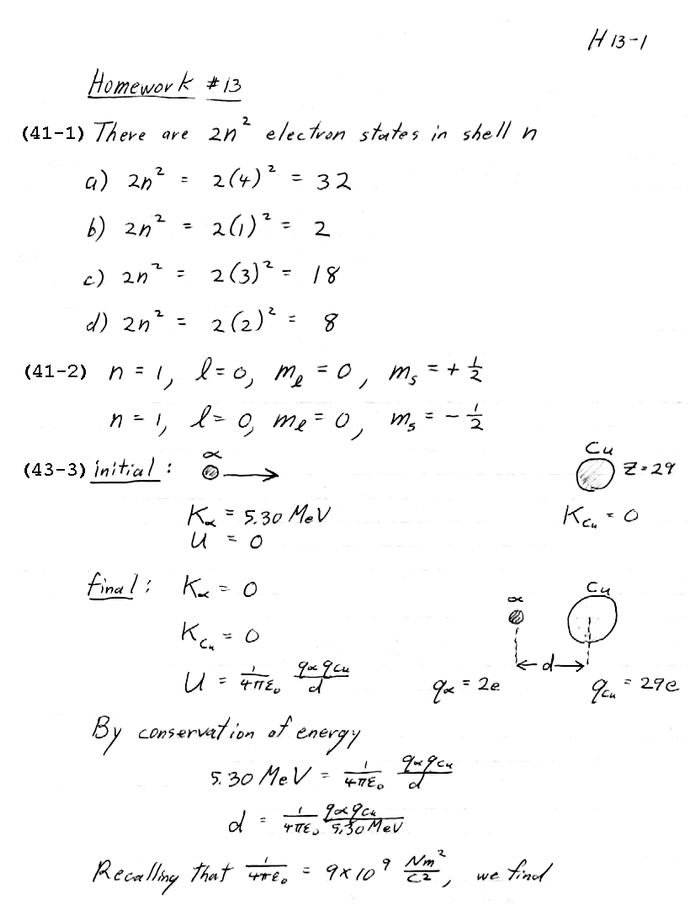 H 13-1
Homework #13
(41-1) There are 2n² electron states in shell n
a) 2n² = 2(4)² = 32
b) 2n² = 2(1)² = 2
c) 2n² = 2(3)² = 18
d) 2n² = 2(2)² = 8
(41-2) n = 1, l = 0, m_l = 0, m_s = + 1/2
n = 1, l = 0, m_l = 0, m_s = - 1/2
(43-3) initial: α Cu Z = 29
K_α = 5.30 MeV K_Cu = 0
U = 0
final: K_α = 0 α Cu
K_Cu = 0
d
U = 1/4πε₀ q_α q_Cu/d q_α = 2e q_Cu = 29e
By conservation of energy
5.30 MeV = 1/4πε₀ q_α q_Cu/d
d = 1/4πε₀ q_α q_Cu/5.30 MeV
Recalling that 1/4πε₀ = 9×10⁹ Nm²/C², we find